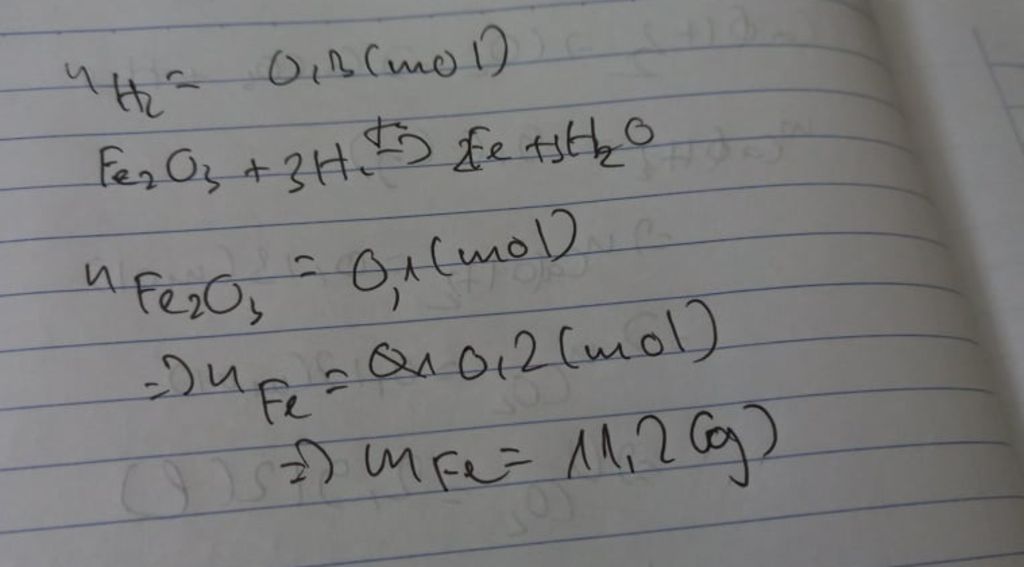 n H2 = 0,3 (mol)
Fe2O3 + 3H2 t° => 2Fe + 3H2O
n Fe2O3 = 0,1 (mol)
=> n Fe = 0,2 (mol)
=> m Fe = 11,2 (g)